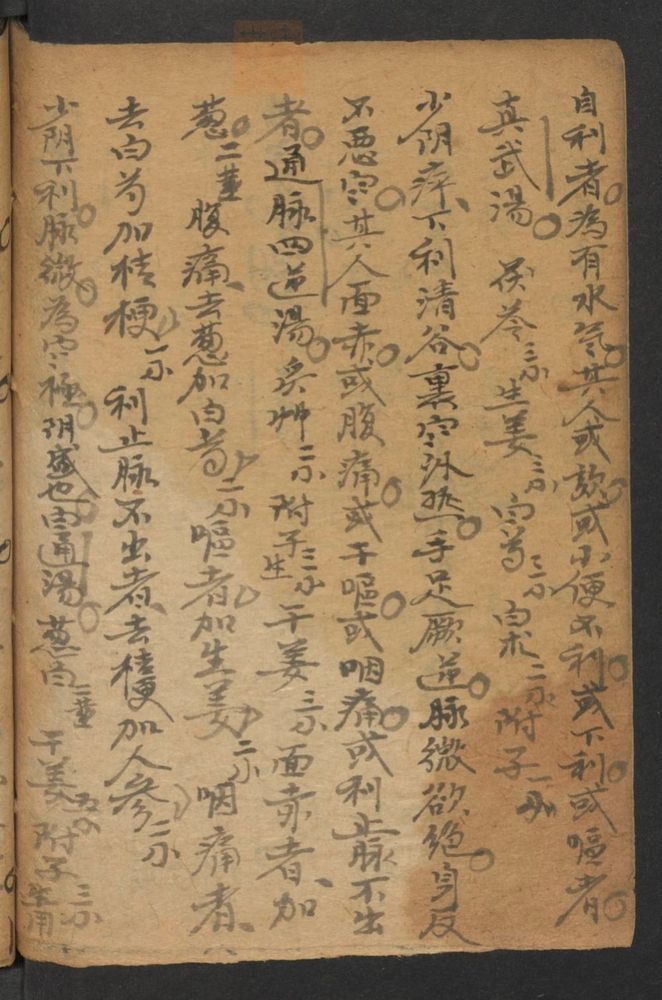 自利者。為有水气。其人或欬。或小便不利。或下利。或嘔者。
真武湯。茯苓三小 生姜三小 白芍三小 白术二小 附子一小
少阴病下利清谷。裏寒外熱。手足厥逆。脉微欲絕。身反
不恶寒。其人面赤。或腹痛。或干嘔。或咽痛。或利止脉不出
者。通脉四逆湯。炙艸二小 附子生三小 干姜三小 面赤者、加
葱。二莖 腹痛去葱加白芍二小 嘔者加生姜二小 咽痛者、
去白芍加桔梗一小 利止脉不出者、去桔梗加人参二小
少阴下利。脉微。為寒極阴盛也。白通湯。葱白二莖 干姜 附子生用